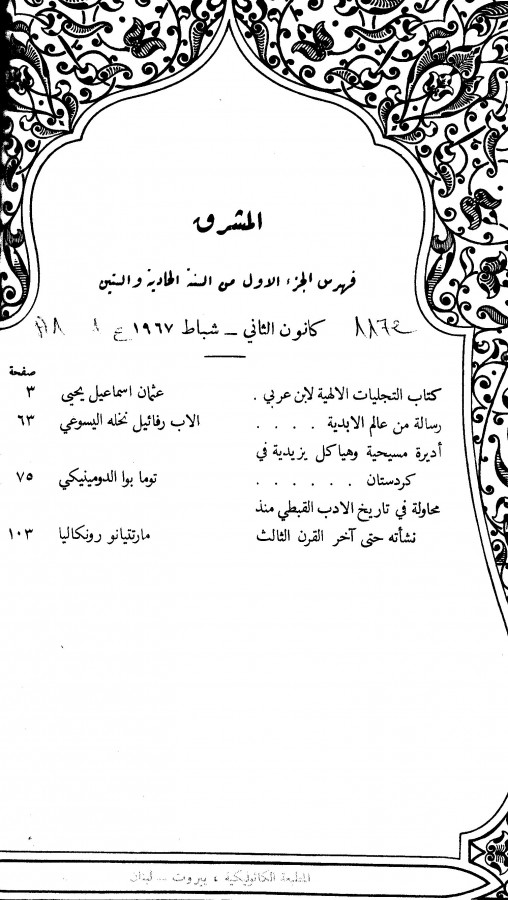 المشرق
فهرس الجزء الاول من السنة الحادية والستين
كانون الثاني – شباط ١٩٦٧
صفحة
كتاب التجليات الالهية لابن عربي . عثمان اسماعيل يحيى ٣
رسالة من عالم الابدية . . . . الاب رفائيل نخله اليسوعي ٦٣
أديرة مسيحية وهياكل يزيدية في
كردستان . . . . . . توما بوا الدومينيكي ٧٥
محاولة في تاريخ الادب القبطي منذ
نشأته حتى آخر القرن الثالث مارتتيانو رونكاليا ١٠٣
المطبعة الكاثوليكية ، بيروت – لبنان